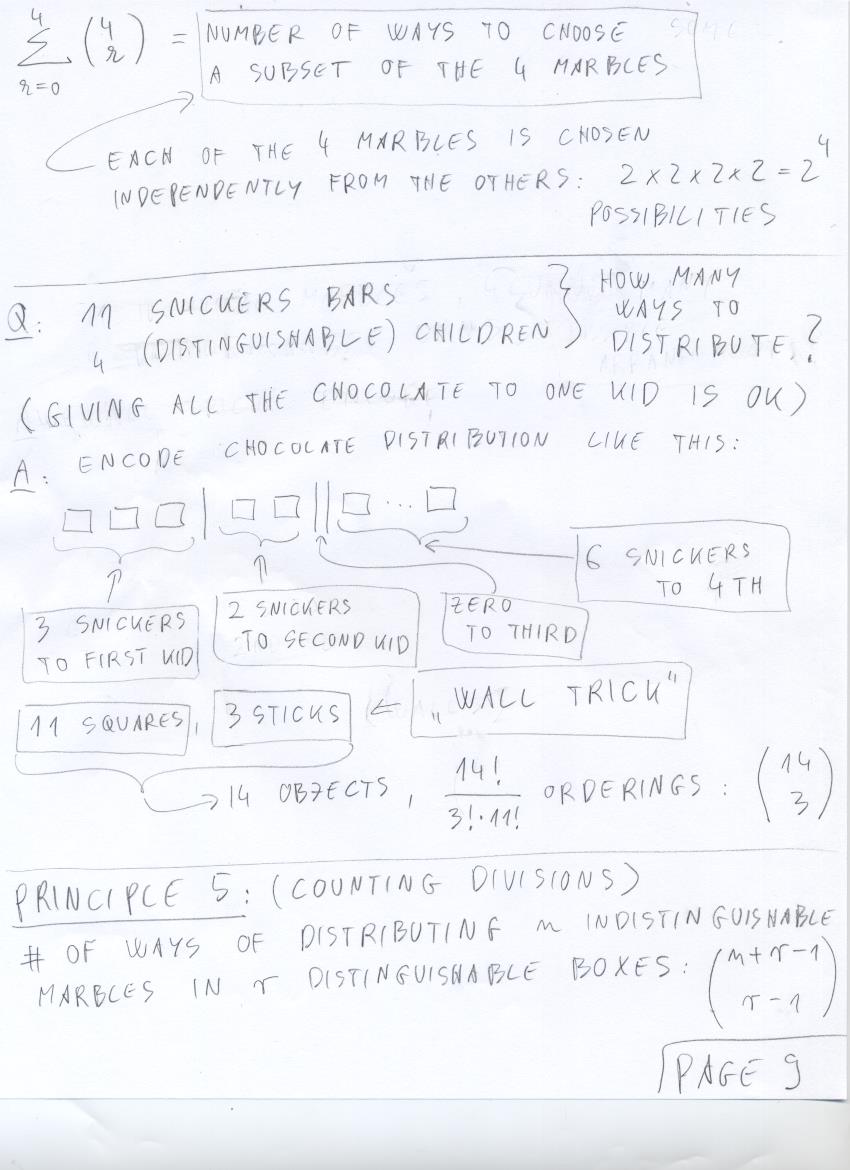 4
∑ (4 r) = NUMBER OF WAYS TO CHOOSE
r=0
A SUBSET OF THE 4 MARBLES
EACH OF THE 4 MARBLES IS CHOSEN
INDEPENDENTLY FROM THE OTHERS: 2×2×2×2=2^4
POSSIBILITIES
Q: 11 SNICKERS BARS
4 (DISTINGUISHABLE) CHILDREN
} HOW MANY
WAYS TO
DISTRIBUTE?
(GIVING ALL THE CHOCOLATE TO ONE KID IS OK)
A: ENCODE CHOCOLATE DISTRIBUTION LIKE THIS:
□ □ □ | □ □ || □ ... □
6 SNICKERS
TO 4TH
3 SNICKERS
TO FIRST KID
2 SNICKERS
TO SECOND KID
ZERO
TO THIRD
11 SQUARES, 3 STICKS ← „WALL TRICK"
→ 14 OBJECTS, 14!/(3!·11!) ORDERINGS: (14 3)
PRINCIPLE 5: (COUNTING DIVISIONS)
# OF WAYS OF DISTRIBUTING n INDISTINGUISHABLE
MARBLES IN r DISTINGUISHABLE BOXES: (n+r-1 r-1)
PAGE 9